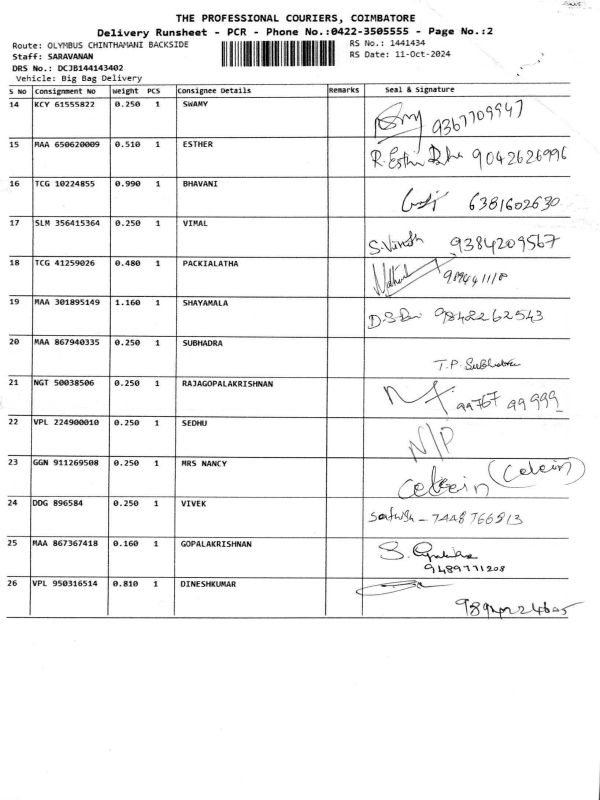 THE PROFESSIONAL COURIERS, COIMBATORE
Delivery Runsheet - PCR - Phone No.:0422-3505555 - Page No.:2
Route: OLYMBUS CHINTHAMANI BACKSIDE RS No.: 1441434
Staff: SARAVANAN RS Date: 11-Oct-2024
DRS No.: DCJB144143402
Vehicle: Big Bag Delivery
S No Consignment No Weight PCS Consignee Details Remarks Seal & Signature
14 KCY 61555822 0.250 1 SWAMY 9367709947
15 MAA 650620009 0.510 1 ESTHER R. 9042626996
16 TCG 10224855 0.990 1 BHAVANI 6381602630
17 SLM 356415364 0.250 1 VIMAL 9384209567
18 TCG 41259026 0.480 1 PACKIALATHA
19 MAA 301895149 1.160 1 SHAYAMALA 9842262543
20 MAA 867940335 0.250 1 SUBHADRA T.P. Subhadra
21 NGT 50038506 0.250 1 RAJAGOPALAKRISHNAN 99767 99999
22 VPL 224900010 0.250 1 SEDHU N/P
23 GGN 911269508 0.250 1 MRS NANCY
24 DDG 896584 0.250 1 VIVEK - 7448766513
25 MAA 867367418 0.160 1 GOPALAKRISHNAN S.
9489771208
26 VPL 950316514 0.810 1 DINESHKUMAR